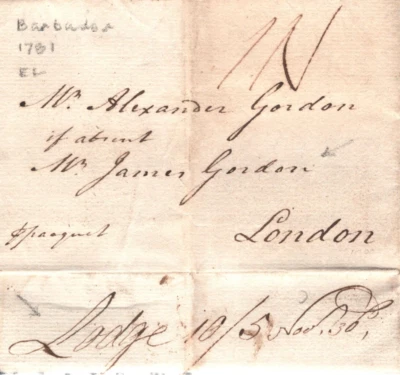 Barbados
1781
EL
Mr. Alexander Gordon
if absent
Mr. James Gordon
pr pacquet
London
Lodge 10/5 Nov. 30,